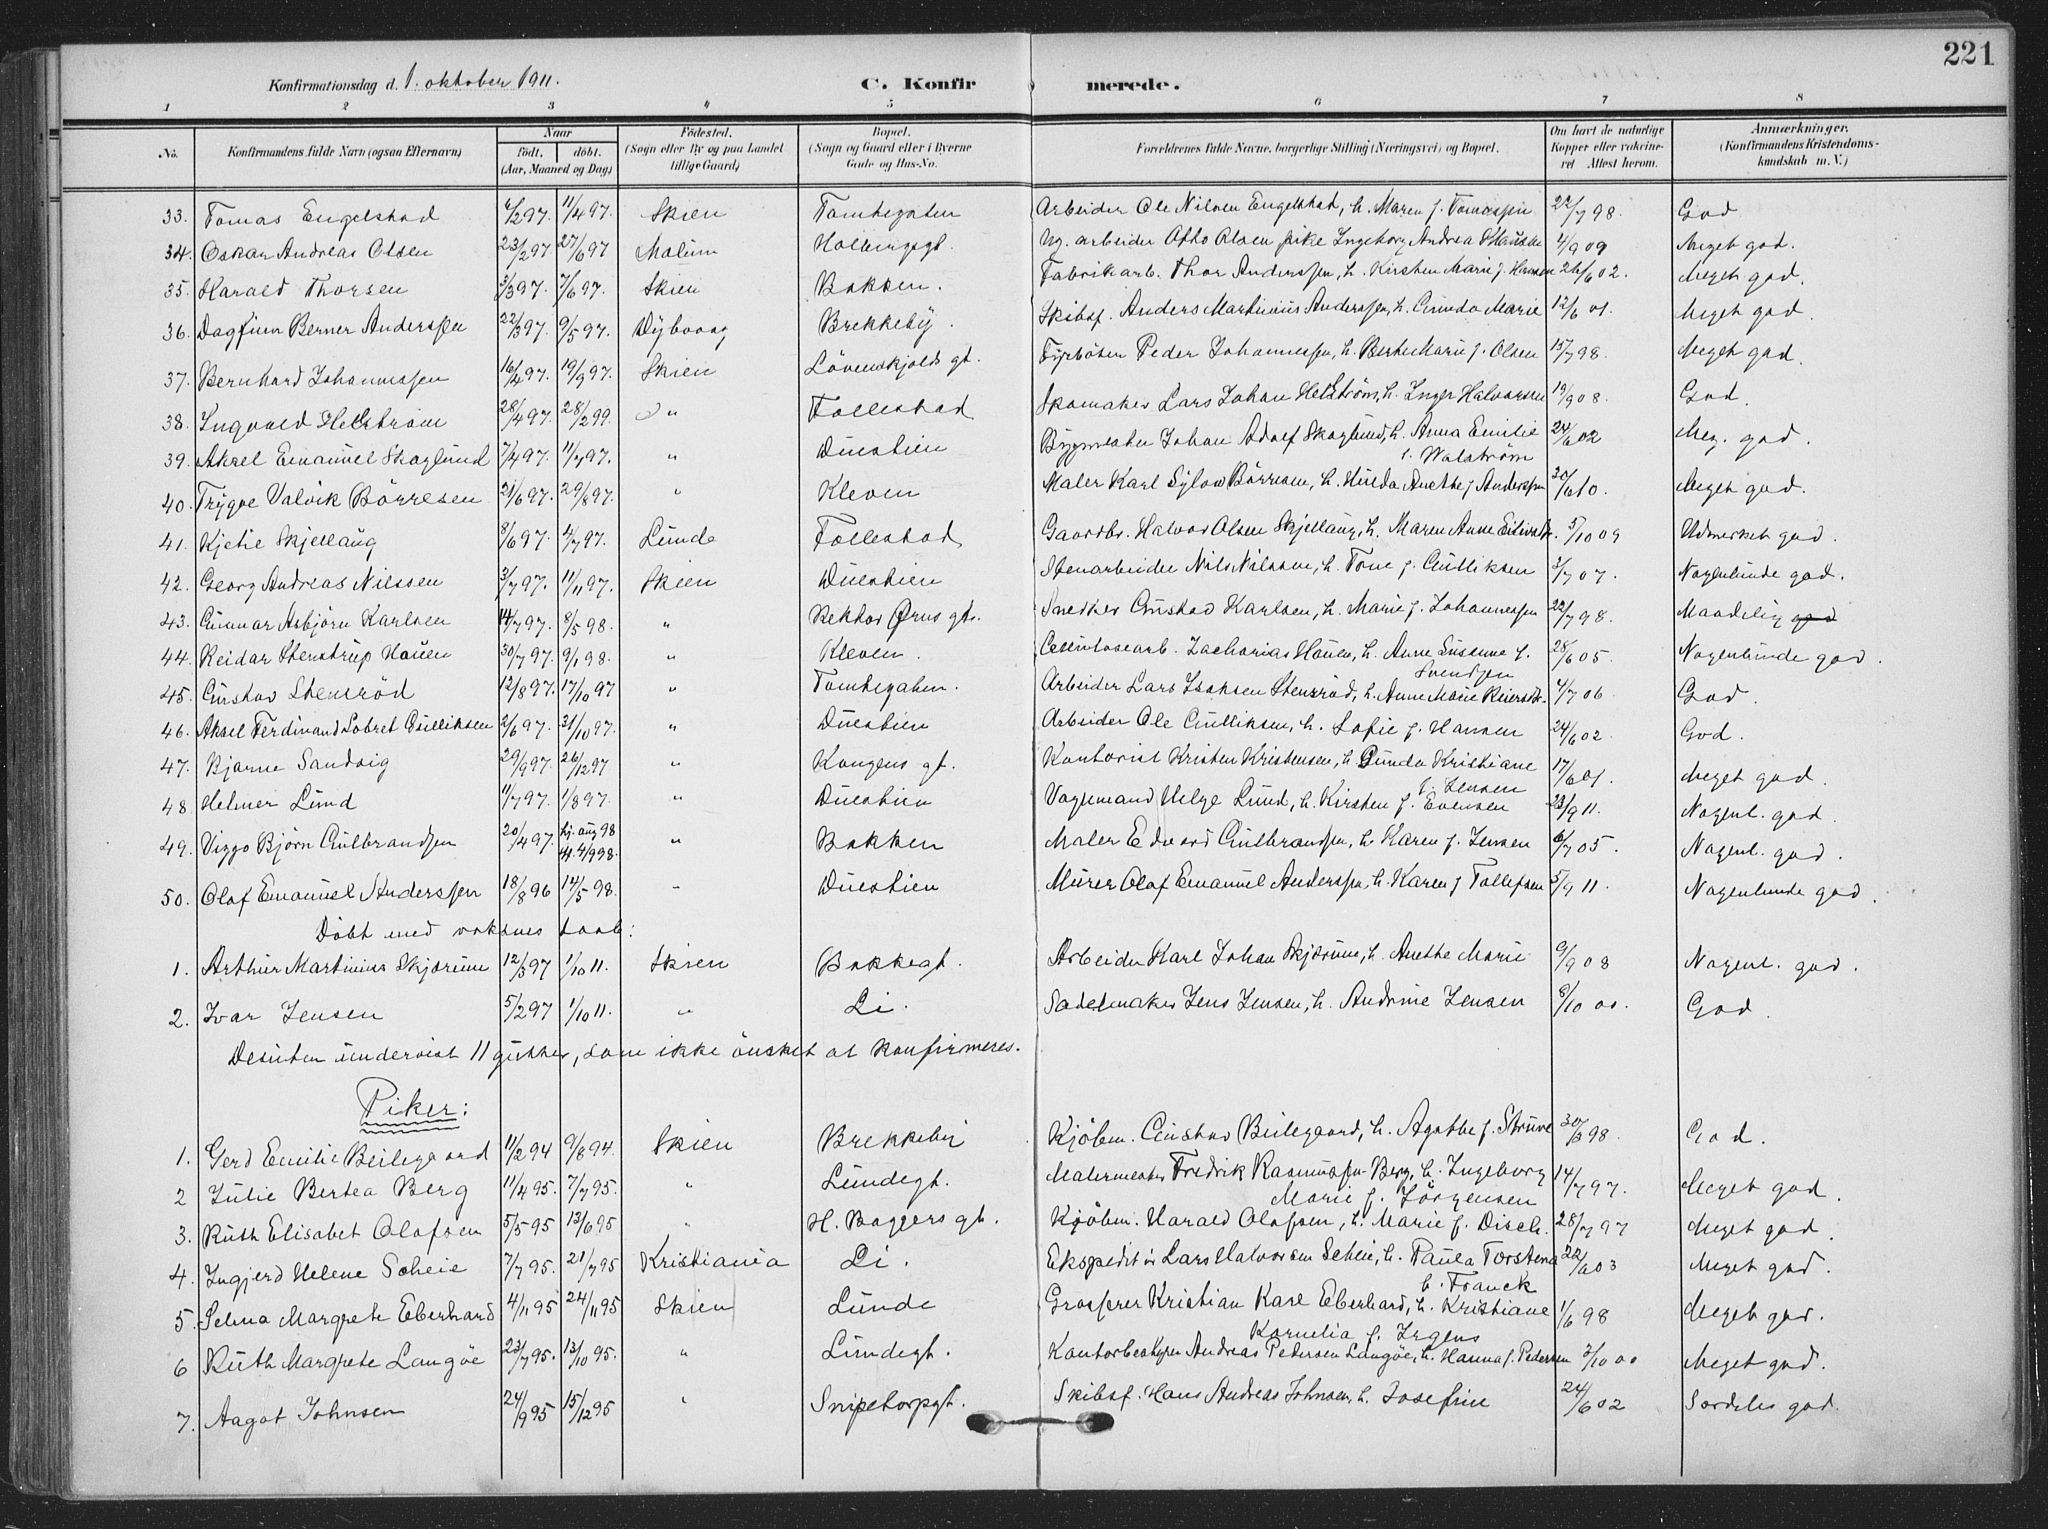 221
Konfirmationsdag d. 1. oktober 1911. C. Konfirmerede.
1 2 3 4 5 6 7 8
No. Konfirmandens fulde Navn (ogsaa Efternavn) Naar født. døbt. (Aar, Maaned og Dag) Fødested. (Sogn eller By og paa Landet tillige Gaard) Bopæl. (Sogn og Gaard eller i Byerne Gade og Hus-No. Forældrenes fulde Navne, borgerlige Stilling (Næringsvei) og Bopæl. Om havt de naturlige Kopper eller vakcineret Attest herom. Anmærkninger. (Konfirmandens Kristendomskundskab m. V.)
33. Tomas Engelstad 6/2 97. 11/4 97. Skien Tomtegaten Arbeider Ole Nilsen Engelstad, h. Maren f. Tomassen 22/7 98. God
34. Oskar Andreas Olsen 23/2 97. 27/6 97 Melum Hollingsgt. Ug. arbeider Otto Olsen pike Ingeborg Andrea 4/9 09 Meget god.
35. Harald Thorsen 3/3 97. 7/6 97. Skien Bakken. Fabrikarb. Thor Anderssen, h. Kirsten Marie f. Hansen 26/6 02. Meget god.
36. Dagfinn Berner Anderssen 22/3 97. 9/5 97. Dybvaag Brekkeby. Skibsf. Anders Martinius Anderssen, h. Gunda Marie 12/6 01. Meget god.
37. Bernhard Johannessen 16/4 97. 19/9 97. Skien Løvenskjolds gt. Fyrbøter Peder Johannessen, h. Berte Marie f. Olsen 15/7 98. Meget god.
38. Ingvald Helstrøm 28/4 97. 28/2 99. " Follestad Skomaker Lars Johan Helstrøm, h. Inger Halvorsen 19/9 08. God.
39. Aksel Emanuel Skoglund 7/4 97. 11/7 97. " Duestien Bygmester Johan Adolf Skoglund, h. Anna Emilie
f. Walstrøm 24/6 02 Meg. god.
40. Trygve Valvik Børresen 21/6 97. 29/8 97. " Kleven Maler Karl Sylow Børresen, h. Hulda Anethe f. Anderssen 30/6 10. Meget god.
41. Kjetil Skjellaug 8/6 97. 4/7 97. Lunde Follestad Gaardbr. Halvor Olsen Skjellaug, h. Maren Anne Eilivsdtr. 5/10 09 Udmerket god.
42. Georg Andreas Nilssen 3/7 97. 11/11 97. Skien Duestien Stenarbeider Nils Nilssen, h. Tone f. Gulliksen 2/7 07. Nogenlunde god.
43. Gunnar Asbjørn Karlsen 14/7 97. 8/5 98. " Rektor Ørns gt. Snedker Gustav Karlsen, h. Marie f. Johannessen 22/7 98. Maadelig god
44. Reidar Stenstrup Hauen 30/7 97. 9/1 98. " Kleven. Cellulosearb. Zacharias Hauen, h. Anne Susanne f.
Svendsen 28/6 05. Nogenlunde god.
45. Gustav Stensrød 12/8 97. 17/10 97 " Tomtegaten. Arbeider Lars Isaksen Stensrød, h. Anne Marie Reiersdtr. 4/7 06 God.
46. Aksel Ferdinand Gulliksen 2/6 97. 31/10 97. " Duestien Arbeider Ole Gulliksen, h. Sofie f. Hansen 24/6 02. God.
47. Bjarne Sandvig 29/9 97. 26/12 97 " Kongens gt. Kontorist Kristen Kristensen, h. Gunda Kristiane
f. Jensen 17/6 01. Meget god.
48 Helmer Lund 11/7 97. 1/8 97. " Duestien Vognmand Helge Lund, h. Kirsten f. Evensen 23/9 11. Nogenl. god.
49. Viggo Bjørn Gulbrandsen 20/4 97. hj. aug 98 4/9 98. " Bakken Maler Edvard Gulbrandsen, h. Karen f. Jensen 6/7 05. Nogenl. god.
50. Olaf Emanuel Anderssen 18/8 96 14/5 98. " Duestien Murer Olaf Emanuel Anderssen, h. Karen f. Tollefsen 5/9 11. Nogenlunde god.
Døbt med voksnes daab:
1. Arthur Martinius Skjørum 12/3 97 1/10 11. Skien Bakkegt. Arbeider Karl Johan Skjørum, h. Anethe Marie 9/9 08 Nogenl. god.
2. Ivar Jensen 5/2 97 1/10 11. " Li. Sadelmaker Jens Jensen, h. Andrine Jensen 8/10 00. God.
Desuten undervist 11 gutter, som ikke ønsket at konfirmeres.
Piker:
1. Gerd Emilie Beilegaard 11/2 94 9/8 94. Skien Brekkeby Kjøbm. Gustav Beilegaard, h. Agathe f. Struve 30/3 98. God.
2 Julie Bertea Berg 11/4 95. 7/7 95. " Lundegt. Malermester Fredrik Rasmussen Berg, h. Ingeborg
Marie f. Jørgensen 14/7 97. Meget god.
3. Ruth Elisabet Olafsen 5/5 95 13/6 95 " H. Baggers gt. Kjøbm. Harald Olafsen, h. Marie f. Disch. 28/7 97 Meget god.
4. Ingjerd Helene Scheie 7/7 95. 21/7 95 Kristiania Li. Ekspeditør Lars Halvorsen Scheie, h. Paula Torstena
f. Franck 22/6 03 Meget god.
5. Selma Margrete Eberhard 4/11 95 24/11 95 Skien Lunde Grosserer Kristian Karl Eberhard, h. Kristiane
Kornelia f. Irgens 1/6 98 Meget god.
6 Ruth Margrete Langøe 23/7 95. 13/10 95. " Lundegt. Kontorbestyrer Andreas Pedersen Langøe, h. Hanna f. Pedersen 2/10 00 Meget god.
7. Aagot Johnsen 24/9 95 15/12 95 " Snipetorpgt. Skibsf. Hans Andreas Johnsen, h. Josefine 24/6 02 Særdeles god.